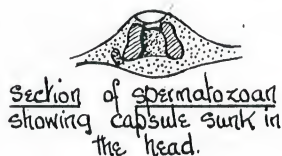 section of spermatozoan
showing capsule sunk in
the head.